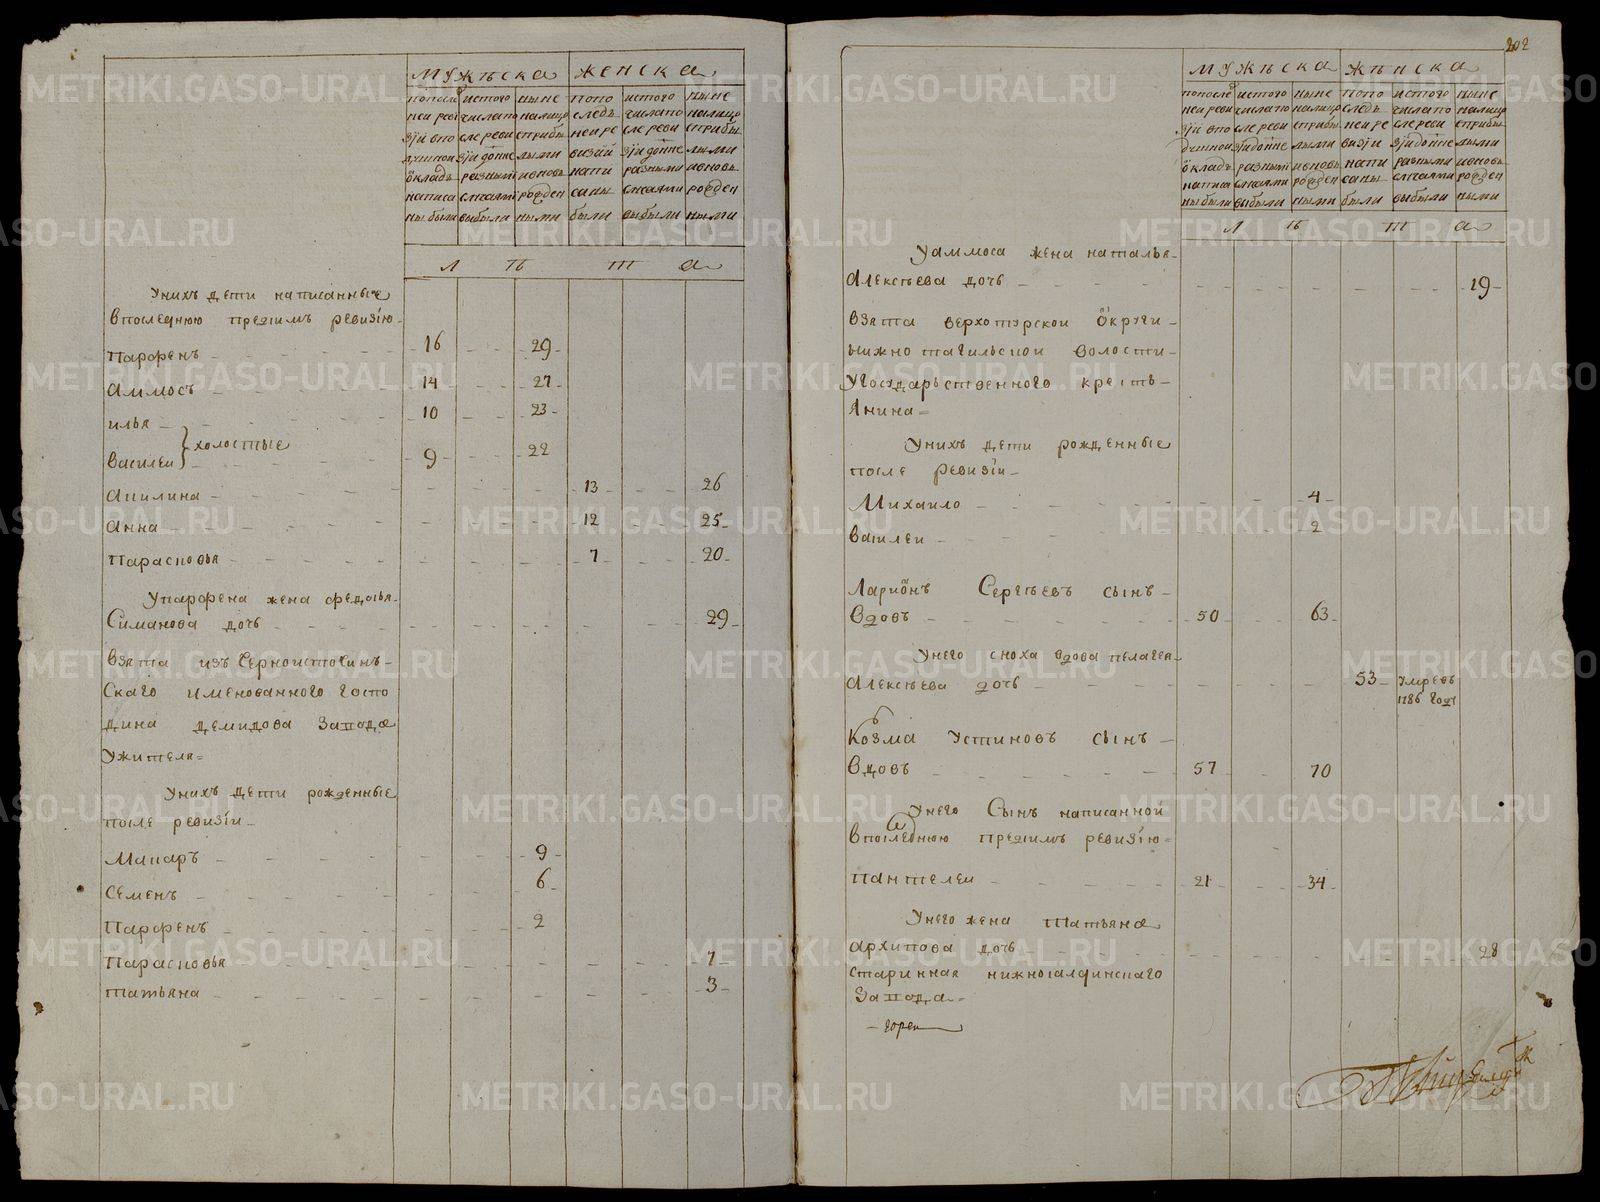 мужъска женска
попосле
ней реви
зiи впо
душной
окладъ
написа
ны были
истого
числапо
сле реви
зiи доныне
разными
случаями
выбыла
ныне
налицо
сприбы
лыми
ивновь
рожден
ными
попо
следъ
ней ре
визiи
напи
саны
были
истого
числапо
сле реви
зiи доныне
разными
случаями
выбыли
ныне
налицо
сприбы
лыми
ивновь
рожден
ными
л ѣ т а
Унихъ дети написанные
впоследнюю предъ симъ ревизiю
парфенъ 16 29
аммосъ 14 27
илья 10 23
василеи 9 22
холостые
акилина 13 26
анна 12 25
парасковья 7 20
Упарфена жена федосья
Симанова дочь 29
взята изъ Черноисточин-
скаго именованного госпо
дина демидова завода
ужителя=
Унихъ дети рожденные
после ревизiи
макаръ 9
семенъ 6
парфенъ 2
парасковья 7
татьяна 3
202
мужъска жѣнска
попосле
ней реви
зiи впо
душной
окладъ
написа
ны были
истого
числапо
сле реви
зiи доныне
разными
случаями
выбыли
ныне
налицо
сприбы
лыми
ивновь
рожден
ными
попо
следъ
ней ре
визiи
напи
саны
были
истого
числапо
сле реви
зiи доныне
разными
случаями
выбыли
ныне
налицо
сприбы
лыми
ивновь
рожден
ными
л ѣ т а
Уаммоса жена наталья
Алексѣева дочь 19
взята верхотурской округи
нижнотагильской волости
угосударьственного кресть-
янина=
Унихъ дети рожденные
после ревизiи
Михаило 4
василеи 2
Ларионъ Сергѣевъ сынъ
вдовъ 50 63
Унего сноха вдова пелагея
Алексѣева дочь 53 умре въ
1786 году
Козма Устиновъ сынъ
вдовъ 57 70
Унего Сынъ написанной
впоследнюю предъ симъ ревизiю=
пантелеи 21 34
Унего жена татьяна
архипова дочь 28
старинная нижносалдинскаго
завода=